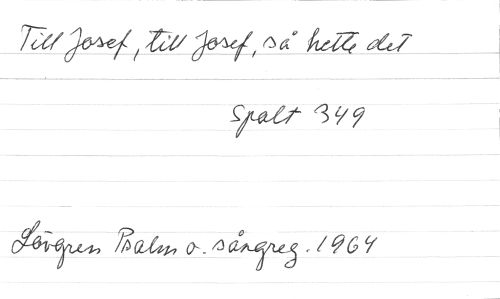 Till Josef, till Josef, så hette det
Spalt 349
Lövgren Psalm o. sångreg. 1964